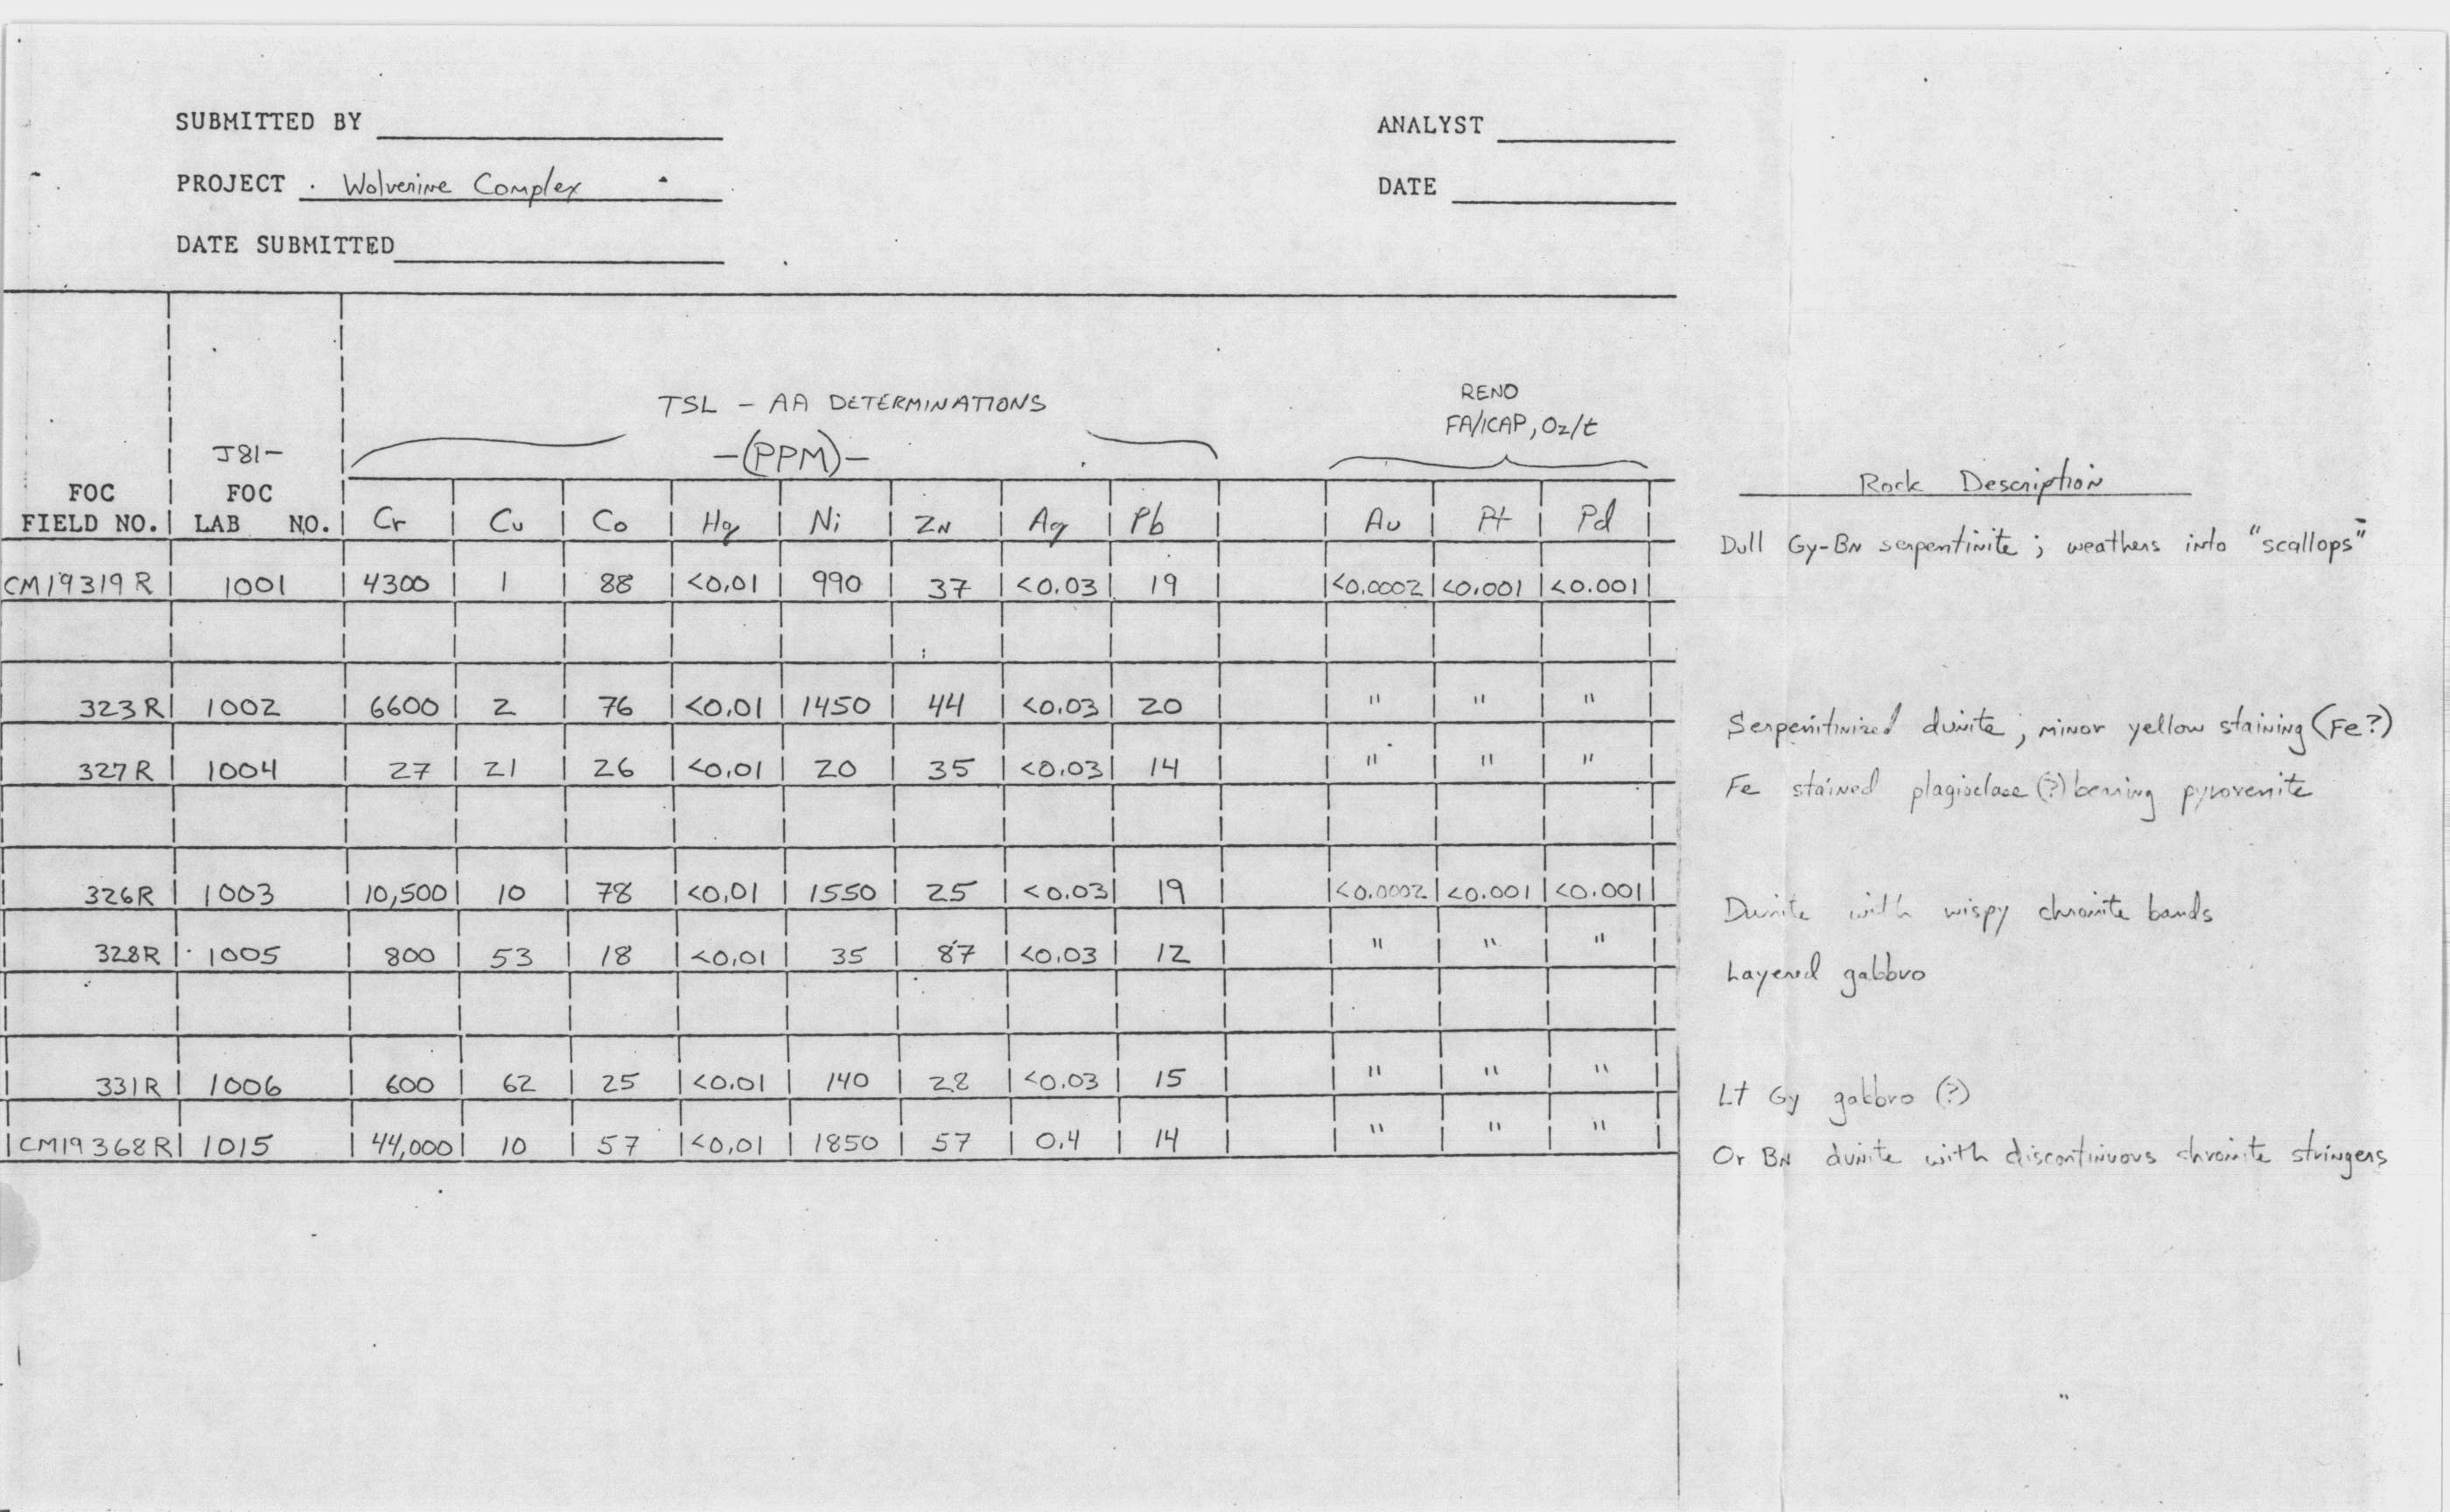 SUBMITTED BY
ANALYST
PROJECT Wolverine Complex
DATE
DATE SUBMITTED
RENO
TSL - AA DETERMINATIONS
FA/ICAP, Oz/t
J81-
-(PPM)-
Rock Description
FOC FOC
FIELD NO. LAB NO. Cr Cu Co Hg Ni ZN Ag Pb Au Pt Pd
Dull Gy-BN serpentinite ; weathers into "scallops"
CM19319R 1001 4300 1 88 <0.01 990 37 <0.03 19 <0.0002 <0.001 <0.001
323R 1002 6600 2 76 <0.01 1450 44 <0.03 20 " " "
Serpentinized dunite ; minor yellow staining (Fe?)
327R 1004 27 21 26 <0.01 20 35 <0.03 14 " " "
Fe stained plagioclase (?) bearing pyroxenite
326R 1003 10,500 10 78 <0.01 1550 25 <0.03 19 <0.0002 <0.001 <0.001
Dunite with wispy chromite bands
328R 1005 800 53 18 <0.01 35 87 <0.03 12 " " "
Layered gabbro
331R 1006 600 62 25 <0.01 140 28 <0.03 15 " " "
Lt Gy gabbro (?)
CM19368R 1015 44,000 10 57 <0.01 1850 57 0.4 14 " " "
Or BN dunite with discontinuous chromite stringers